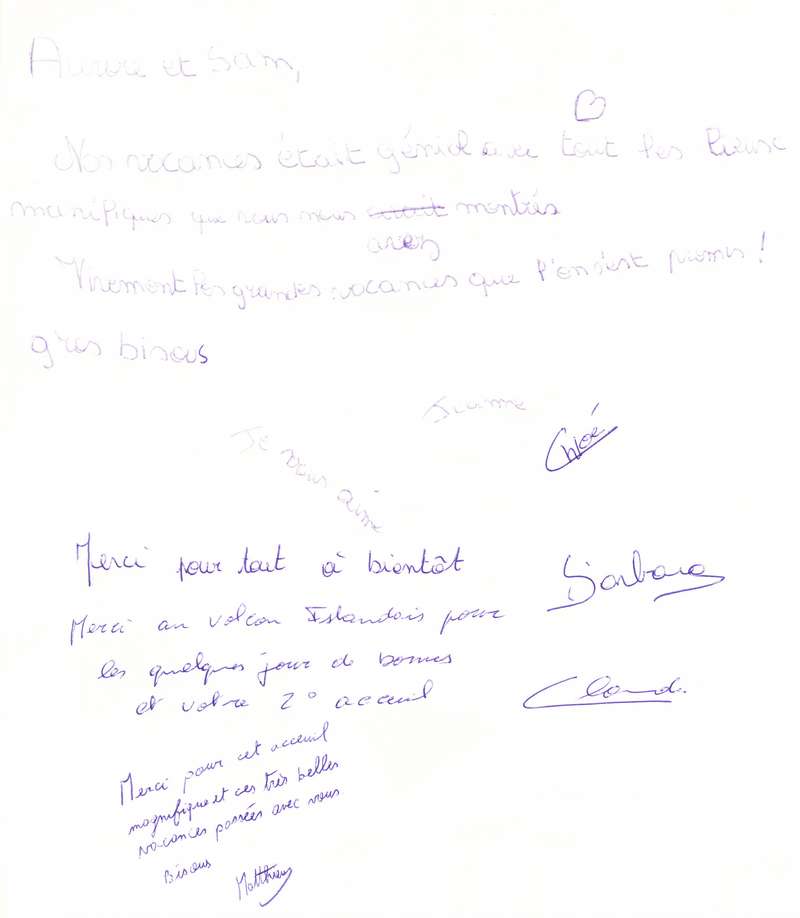 Aurore et Sam,
Nos vacances était génial avec tout les lieux
manifiques que vous nous avait montrés
avez
Vivement les grandes vacances que l'on s'est promis !
gros bisous
Je vous aime
Chloé
Merci pour tout à bientôt
Barbara
Merci au volcan Islandais pour
les quelques jour de bonus
et votre 2° acceuil
Claude.
Merci pour cet acceuil
magnifique et ces très belles
vacances passées avec vous
Bisous
Matthieu